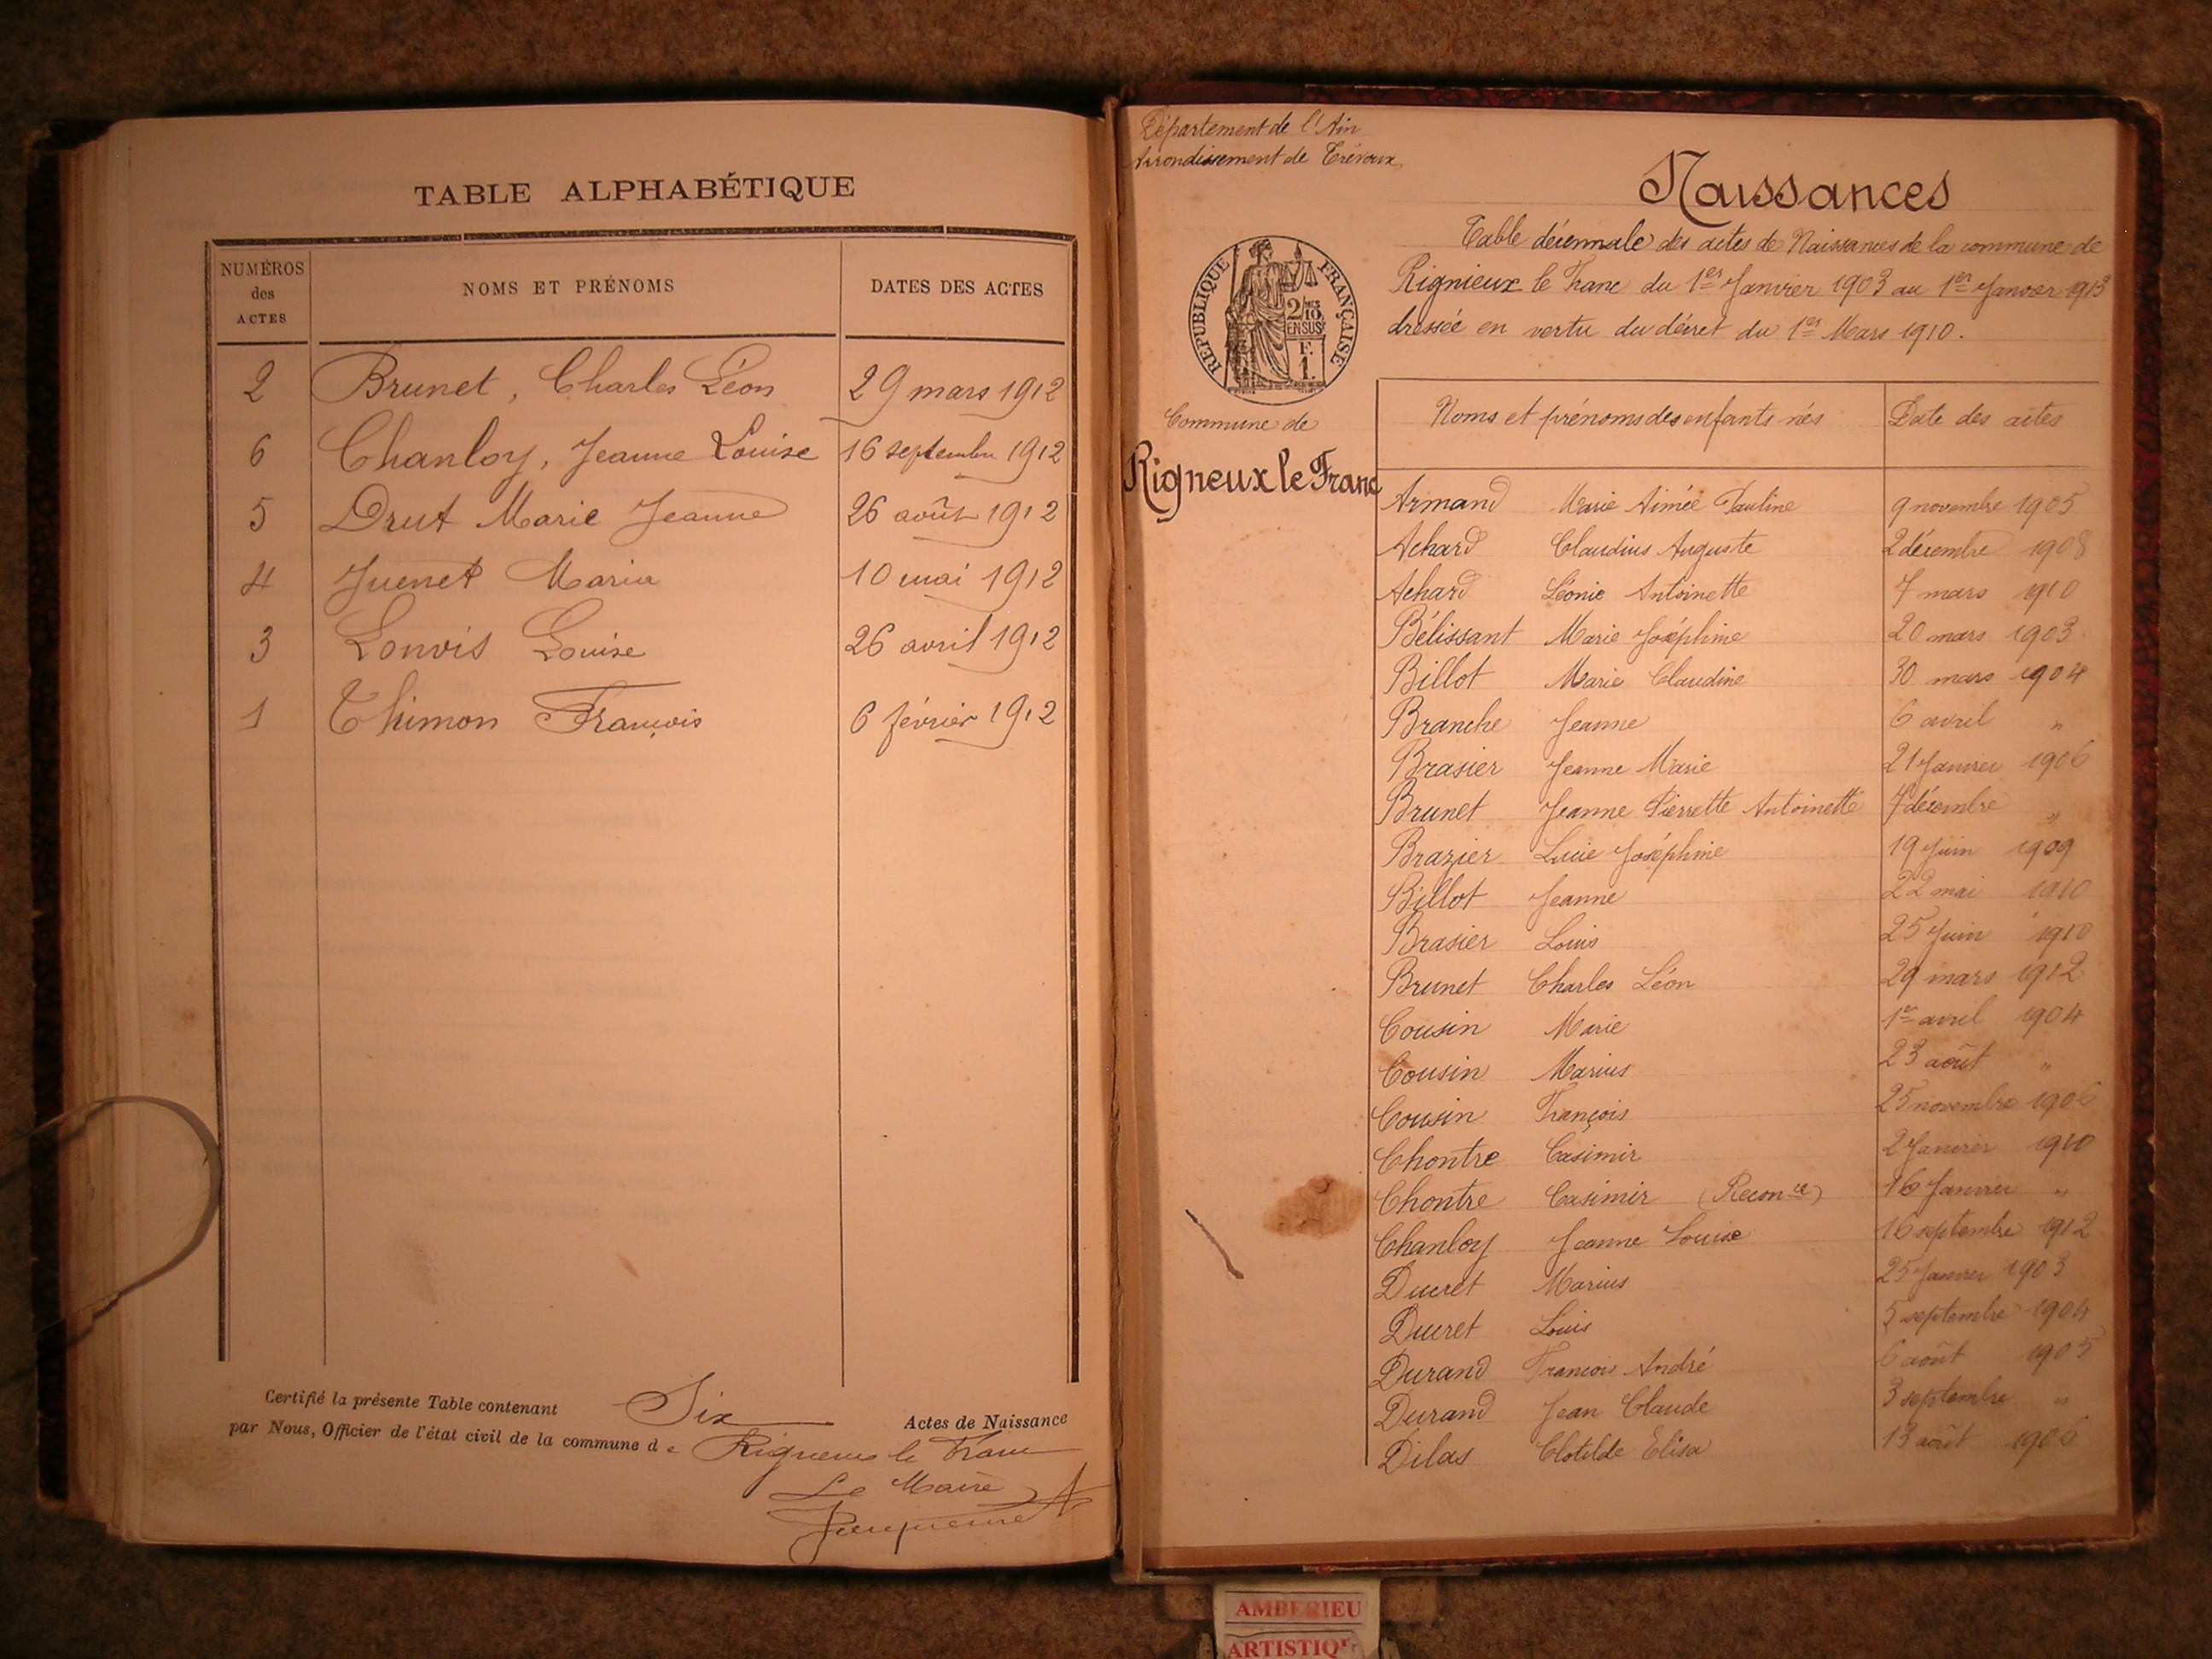 TABLE ALPHABÉTIQUE
NUMÉROS des ACTES NOMS ET PRÉNOMS DATES DES ACTES
2 Brunet, Charles Léon 29 mars 1912
6 Chanloy, Jeanne Louise 16 septembre 1912
5 Drut Marie Jeanne 26 août 1912
4 Juenet Maria 10 mai 1912
3 Lonvis Louise 26 avril 1912
1 Thimon François 6 février 1912
Certifié la présente Table contenant Six Actes de Naissance
par Nous, Officier de l'état civil de la commune de Rigneux le Franc
Le Maire
Département de l'Ain
Arrondissement de Trévoux
RÉPUBLIQUE FRANÇAISE
2/10 EN SUS
F. 1.
Commune de
Rigneux le Franc
Naissances
Table décennale des actes de Naissances de la commune de
Rignieux le Franc du 1er Janvier 1903 au 1er Janvier 1913
dressée en vertu du décret du 1er Mars 1910.
Noms et prénoms des enfants nés Date des actes
Armand Marie Aimée Pauline 9 novembre 1905
Achard Claudius Auguste 2 décembre 1908
Achard Léonie Antoinette 7 mars 1910
Bélissant Marie Joséphine 20 mars 1903
Billot Marie Claudine 30 mars 1904
Branche Jeanne 6 avril "
Brasier Jeanne Marie 21 Janvier 1906
Brunet Jeanne Pierrette Antoinette 7 décembre "
Brazier Lucie Joséphine 19 Juin 1909
Billot Jeanne 22 mai 1910
Brasier Louis 25 Juin 1910
Brunet Charles Léon 29 mars 1912
Cousin Marie 1er avril 1904
Cousin Marius 23 août "
Cousin François 25 novembre 1906
Chontre Casimir 2 Janvier 1910
Chontre Casimir (Reconce) 16 Janvier "
Chanloy Jeanne Louise 16 septembre 1912
Ducret Marius 25 Janvier 1903
Ducret Louis 5 septembre 1904
Durand François André 6 août 1905
Durand Jean Claude 3 septembre "
Dilas Clotilde Elisa 13 août 1906
AMBERIEU
ARTISTIQ